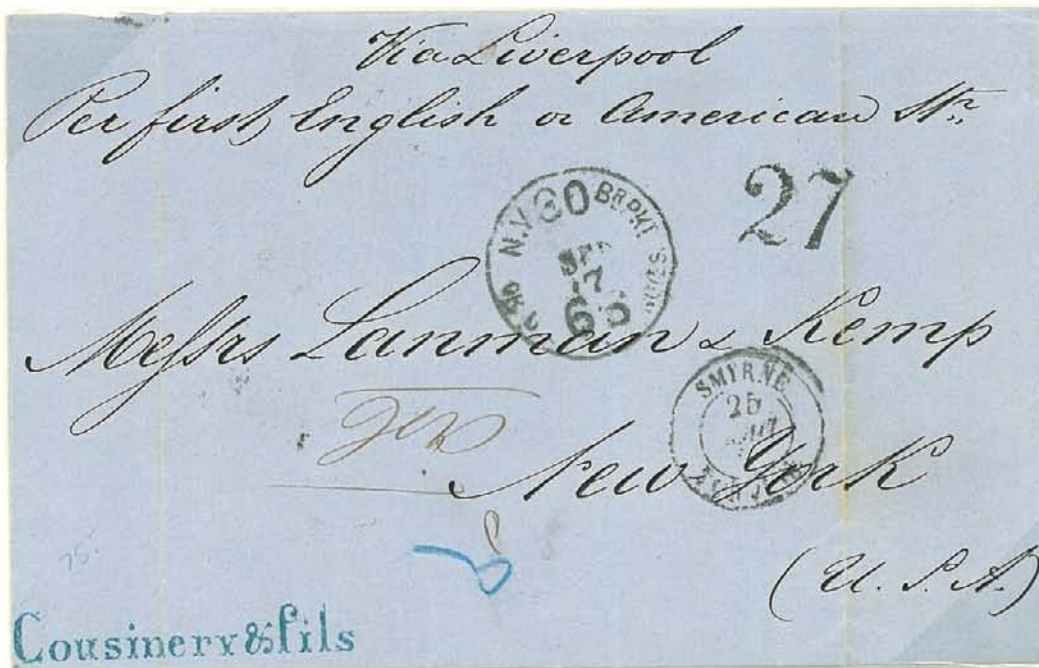 Via Liverpool
Per first English or American Str.
27
N.Y. 30 BR. PKT
SEP
17
Messrs Lanman & Kemp
SMYRNE
25
AOUT
New York
(U.S.A.)
Cousinery & fils